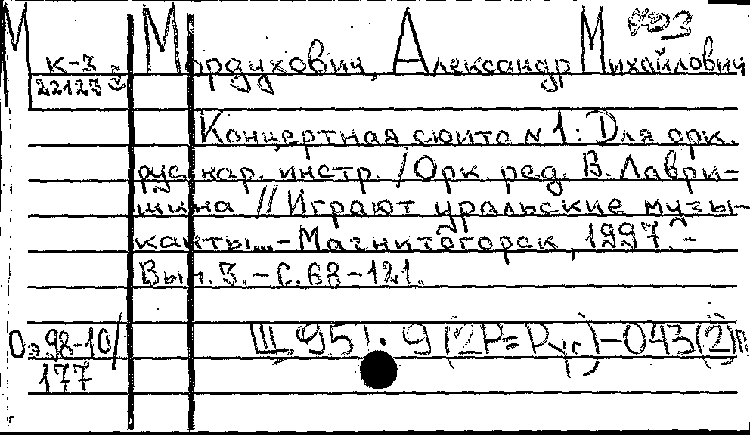 М
К-3
22123
Мордухович, Александр Михайлович
Концертная сюита № 1: Для орк.
рус. нар. инстр. / Орк. ред. В. Лаври-
шина // Играют уральские музы-
канты... - Магнитогорск, 1997. -
Вып. 3. - С. 68-121.
Оэ 98-10/
177
Щ 951.9(2Р=Рус)-043(2)п